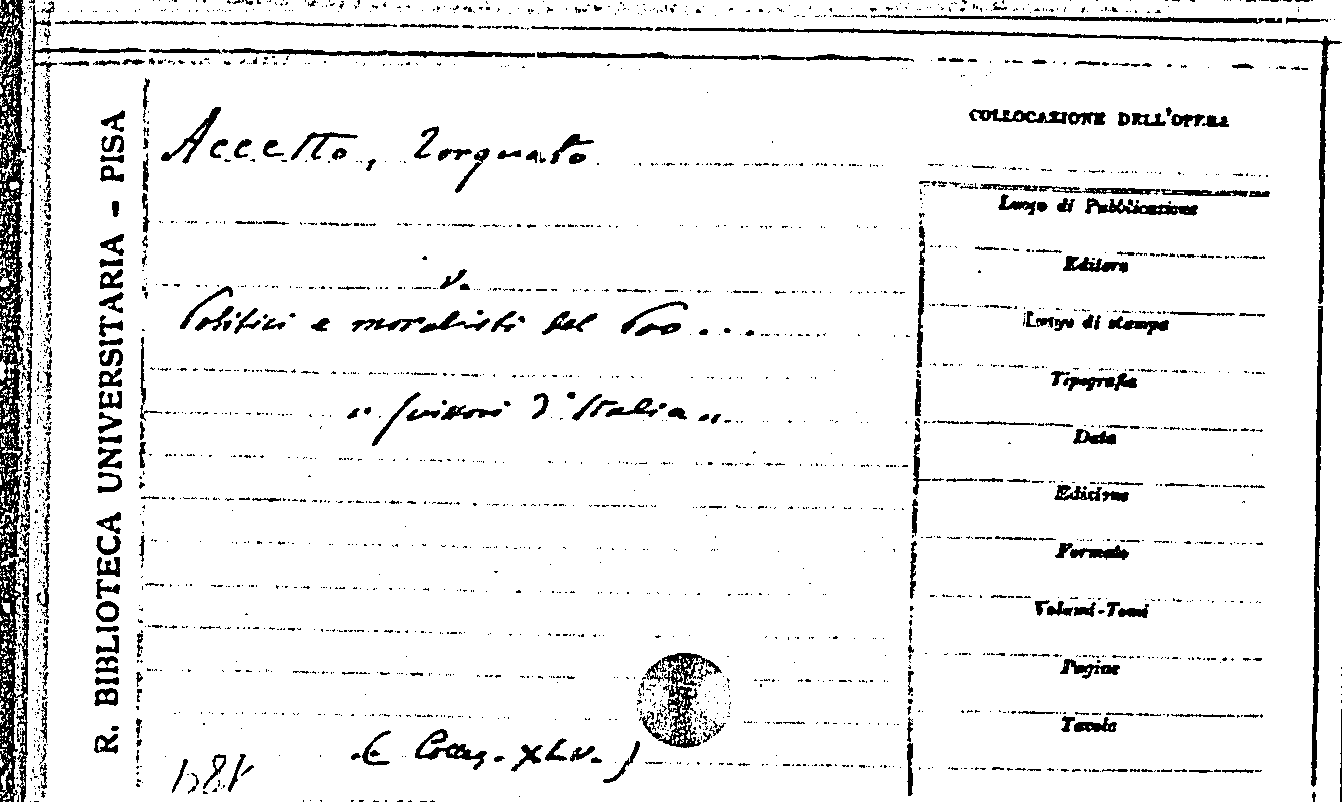 R. BIBLIOTECA UNIVERSITARIA - PISA
Accetto, Torquato
v.
Politici e moralisti del
" Scrittori d'Italia "
( Collez. XLV. )
COLLOCAZIONE DELL'OPERA
Luogo di Pubblicazione
Editore
Luogo di stampa
Tipografia
Data
Edizione
Formato
Volumi-Tomi
Pagine
Tavole